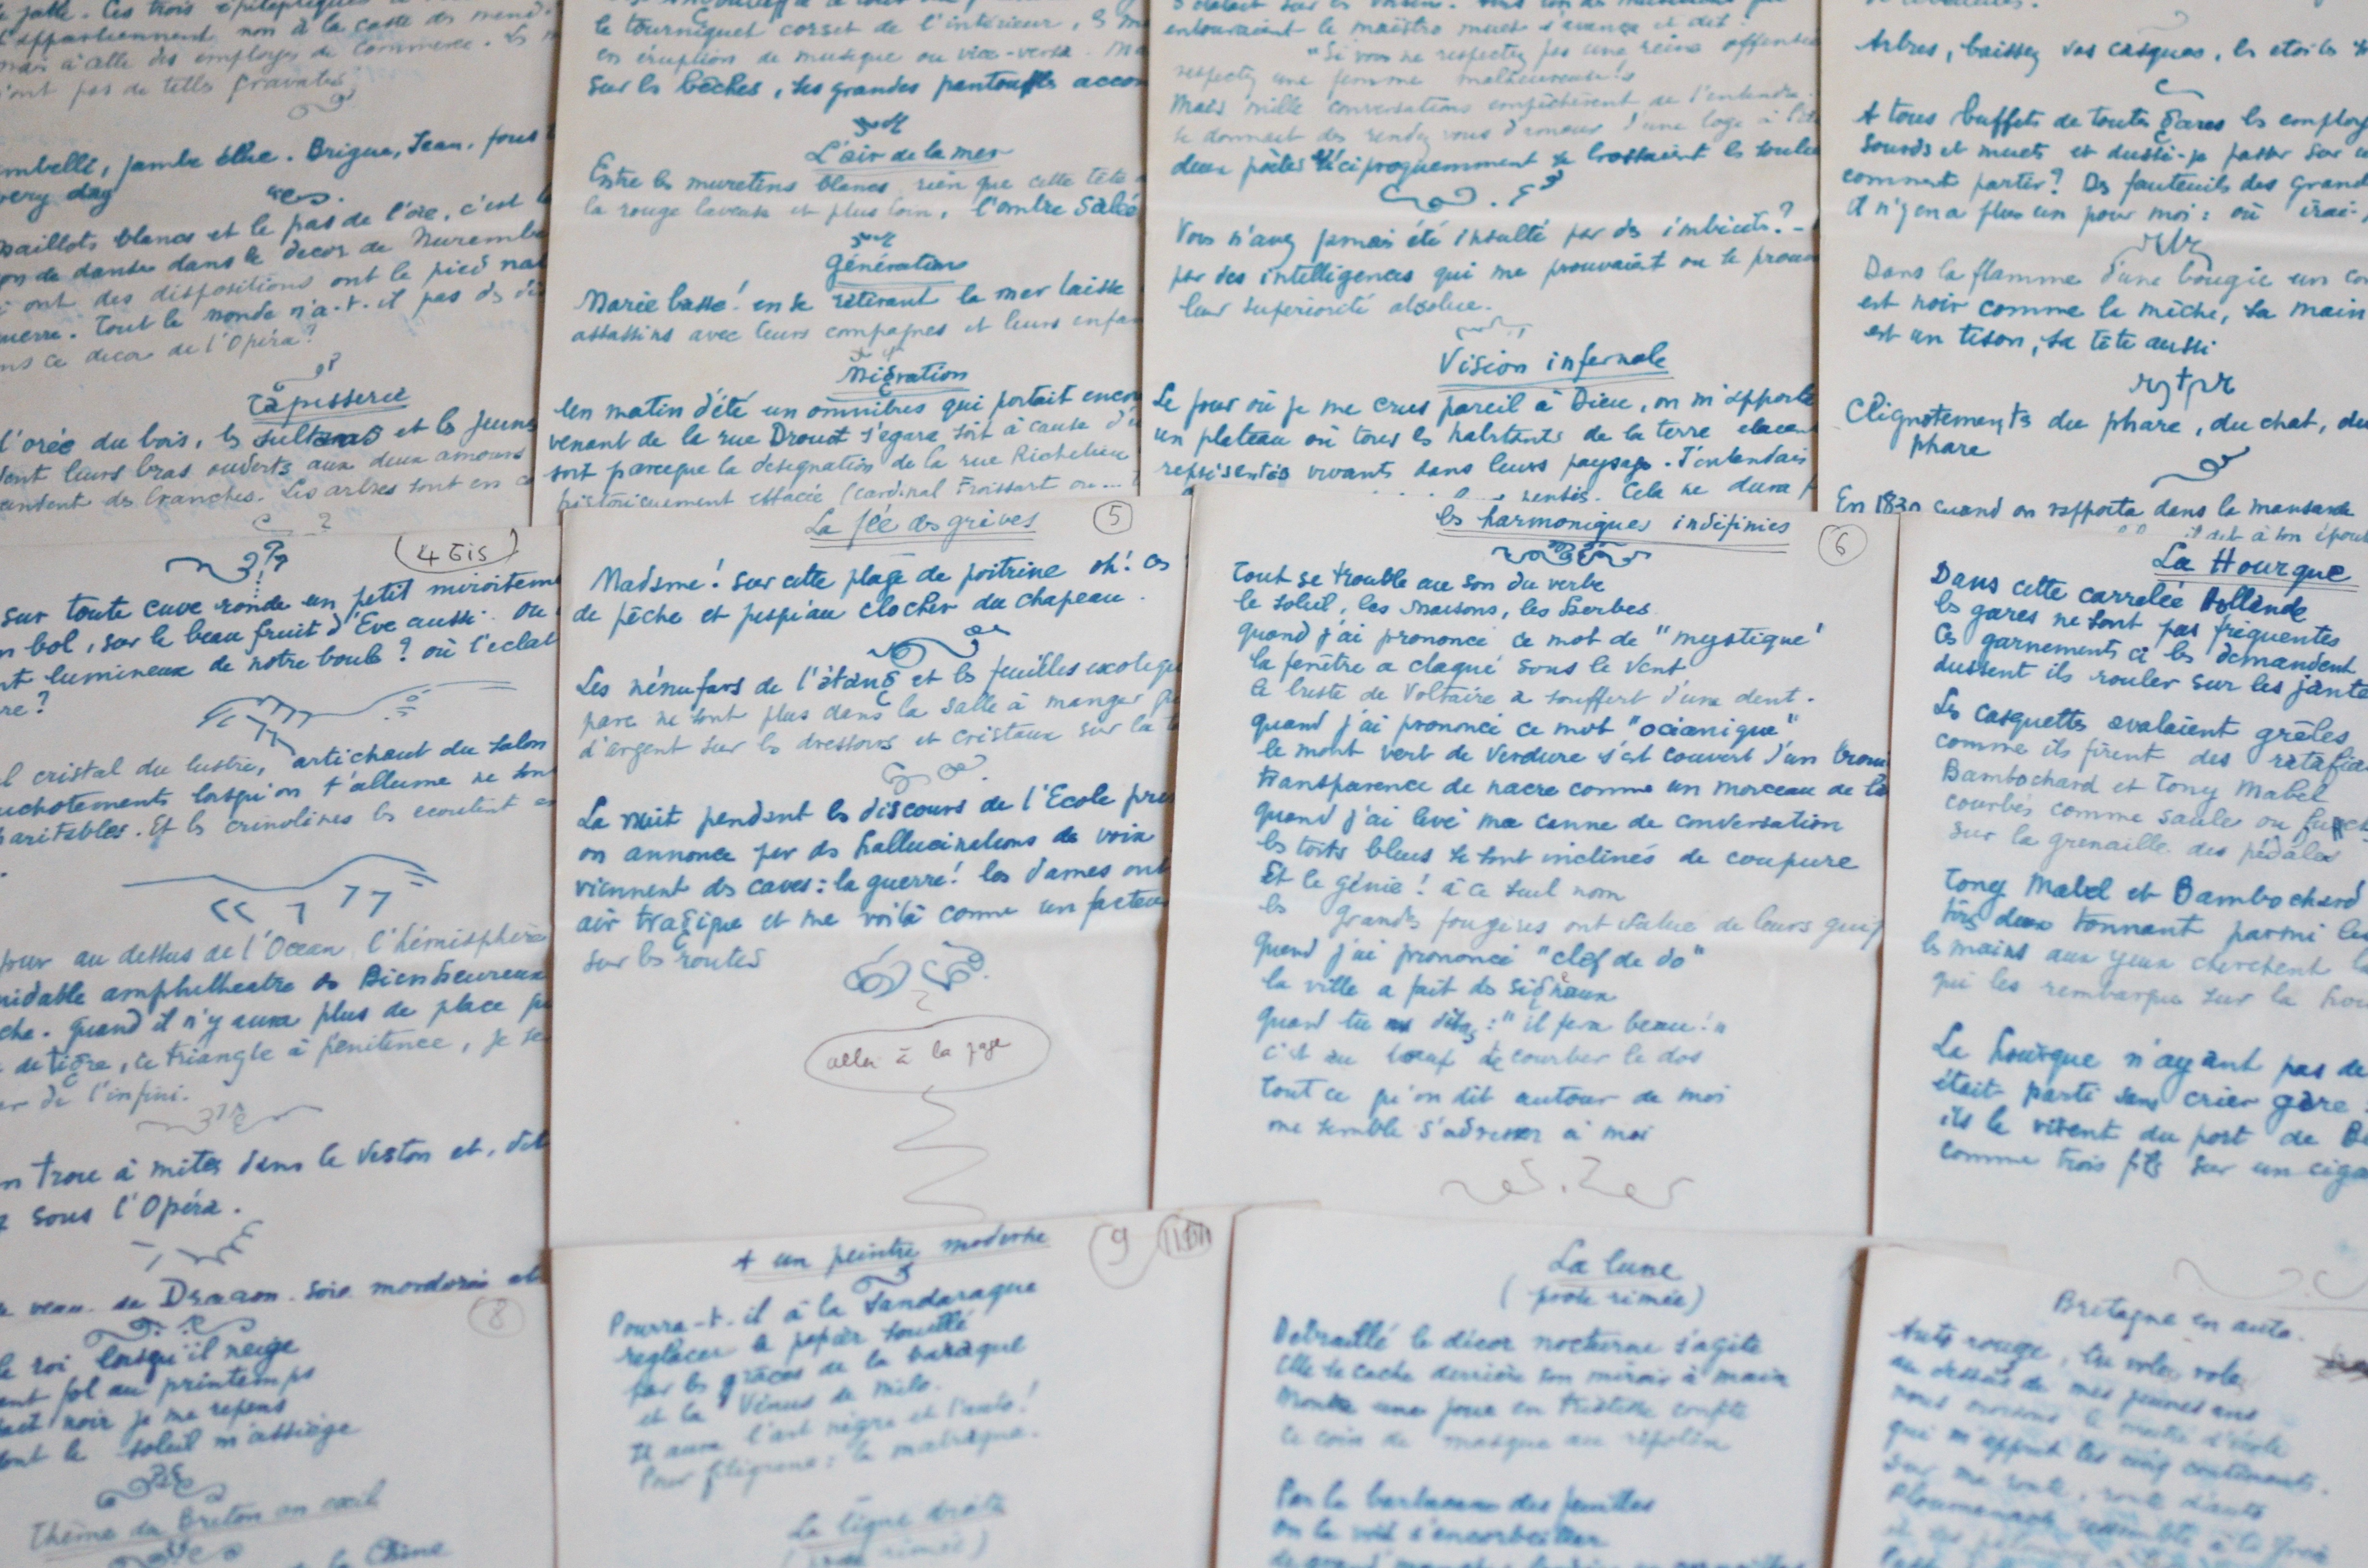 jatte. Ces trois épileptiques
appartiennent non à la caste des mend
mais à celle des employés de commerce. Ls
n'ont pas de telles gravates
jambe élue. Brigue, Jean, fous
very day
maillots blancs et le pas de l'oie, c'est
de danse dans le decor de Nuremb
ont des dispositions ont le pied na
guerre. Tout le monde n'a-t-il pas ds di
ns ce decor de l'Opéra?
Tapisserie
l'orée du bois, ls sultanes et ls jeunes
dent leurs bras ouverts aux deux amours
endent des branches. Les arbres sont en
le tourniquet corset de l'intérieur, & me
en éruption de musique ou vice-versa. Ma
sur ls bêches, ses grandes pantoufles accor
L'air de la mer
Entre ls muretins blancs rien que cette tête
la rouge laveuse et plus loin, l'ombre salée
Générations
Marée basse! en se retirant la mer laisse
assassins avec leurs compagnes et leurs enfan
Migration
Un matin d'été un omnibus qui portait encor
venant de la rue Drouot s'égara soit à cause d'u
soit parceque la désignation de la rue Richelieu
historiquement effacée (cardinal Froissart ou...
entouraient le maestro muet s'avança et dit:
"Si vous ne respectez pas une reine offensée
respectez une femme malheureuse!"
Mais mille conversations empêchèrent de l'entendre.
se donnait des rendez vous d'honneur d'une loge à l'
deux poètes réciproquemment se brossaient ls soulie
Vous n'avez jamais été insulté par ds imbéciles? -
par des intelligences qui me prouvaient ou se prou
leur supériorité absolue.
Vision infernale
Le jour où je me crus pareil à Dieu, on m'apporta
un plateau où tous ls habitants de la terre étaient
représentés vivants dans leurs paysage. J'entendais
sentis. Cela ne dura p
Arbres, baissez vos casques, ls etoiles
A tous buffets de toutes gares ls employ
sourds et muets et dussé-je passer sur
comment partir? Ds fauteuils des grand
il n'y en a plus un pour moi: où irai-
Dans la flamme d'une bougie un co
est noir comme la mèche, sa main
est un tison, sa tête aussi
Clignotements du phare, du chat, du
phare
En 1830 quand on rapporta dans la mansarde
il dit à son épou
(4 bis)
sur toute cuve ronde un petit miroiteme
n bol, sur le beau fruit d'Eve aussi. Ou
nt lumineux de notre boule? où l'eclat
re?
l cristal du lustre, artichaut du salon
uchotements lorsqu'on t'allume ne sont
aritables. Et ls crinolines ls ecoutent
jour au dessus de l'Ocean l'hémisphère
midable amphitheatre ds Bienheureux
che. Quand il n'y aura plus de place
de tigre, ce triangle à pénitence, je se
r de l'infini.
n trou à mites dans le veston et, dit
sous l'Opéra.
veau de Dragon. soie mordorée et
La fée des grèves 5
Madame! sur cette plage de poitrine oh! ces
de pêche et jusqu'au clocher du chapeau.
Les nénufars de l'étang et ls feuilles exotiqu
parc ne sont plus dans la salle à manger
d'argent sur ls dressoirs et cristaux sur la t
La nuit pendant ls discours de l'Ecole
on annonce par ds hallucinations de voix
viennent ds caves: la guerre! les dames ont
air tragique et me voilà comme un facteur
sur ls routes
aller à la page
ls harmoniques indéfinies 6
Tout se trouble au son du verbe
le soleil, les maisons, les herbes
quand j'ai prononcé ce mot de "mystique"
la fenêtre a claqué sous le vent
le buste de Voltaire a souffert d'une dent.
quand j'ai prononcé ce mot "océanique"
le mont vert de verdure s'est couvert d'un
transparence de nacre comme un morceau de
quand j'ai levé ma canne de conversation
ls toits bleus se sont inclinés de coupure
Et le génie! à ce seul nom
ls grands fougères ont salué de leurs
quand j'ai prononcé "clef de do"
la ville a fait ds signaux
Quand tu dis: "il fera beau!"
c'est au bœuf de courber le dos
Tout ce qu'on dit autour de moi
me semble s'adresser à moi
La Hourque
Dans cette carrelée Hollande
ls gares ne sont pas fréquentes
Cs garnements ci ls demandent
dussent ils rouler sur les jante
Ls casquettes avalaient grêles
comme ils firent des ratafia
Bambochard et Tony Mabel
courbés comme saule ou
sur la grenaille des pédales
Tony Mabel et Bambochard
tous deux tonnant parmi les
ls mains aux yeux cherchent
qui les rembarque sur la hou
La hourque n'ayant pas de
était parti sans crier gare
ils le virent du port de
comme trois fils sur un ciga
8
le roi lorsqu'il neige
ent fol au printemps
noir je me repens
dont le soleil m'assiège
Thème du Breton en exil
la Chine
+ un peintre moderne 9
Pourra-t-il à la sandaraque
reglacer le papier souillé
par ls grâces de la baraque
et la Vénus de Milo.
Il aura l'art nègre et l'auto!
Pour filigrane: la matraque.
La ligne droite
La lune
(prose rimée)
Débraillé le décor nocturne s'agite
Elle se cache derrière son miroir à main
Montre une joue en tristesse
ce coin de masque au ripolin
Par la barbacane des feuilles
on la voit s'encorbeiller
Bretagne en auto.
Auto rouge, tu voles, voles
au dessus de mes jeunes ans
qui m'apprit les cinq continents.
sur ma route, route d'auto